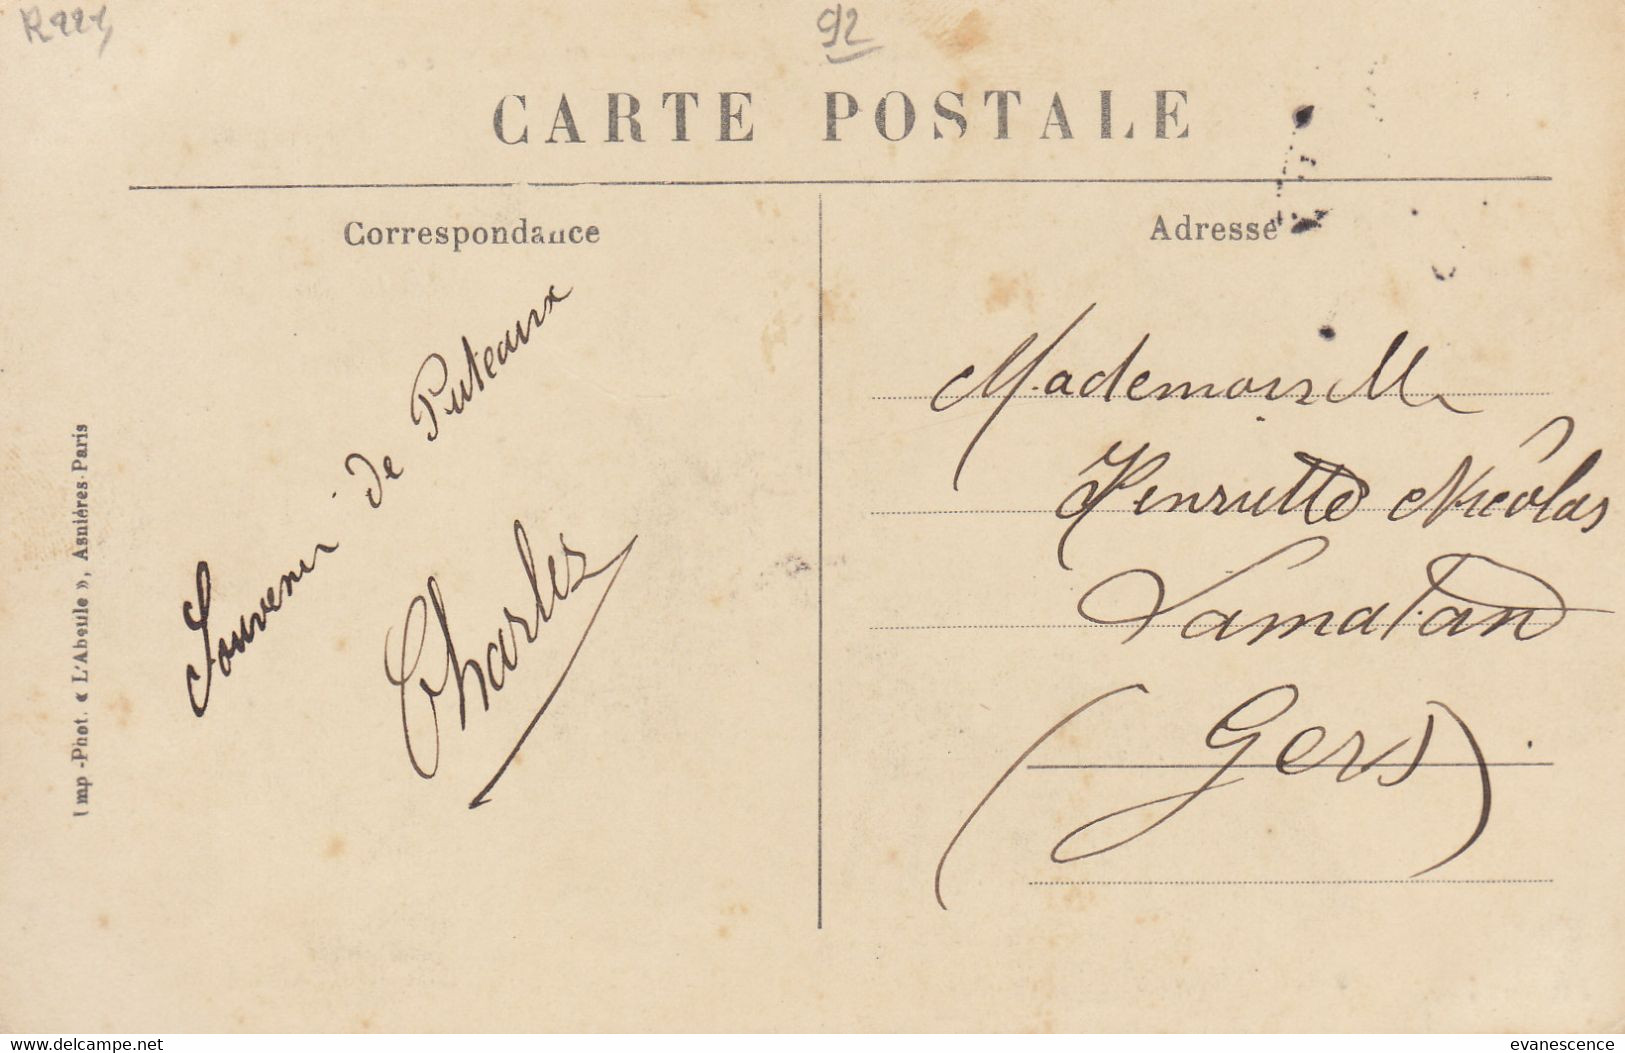 92
CARTE POSTALE
Correspondance
Adresse
Souvenir de Puteaux
Charles
Mademoiselle
Henriette Nicolas
Lamatan
(Gers).
Imp-Phot. « L'Abeille », Asnières-Paris
www.delcampe.net
evanescence